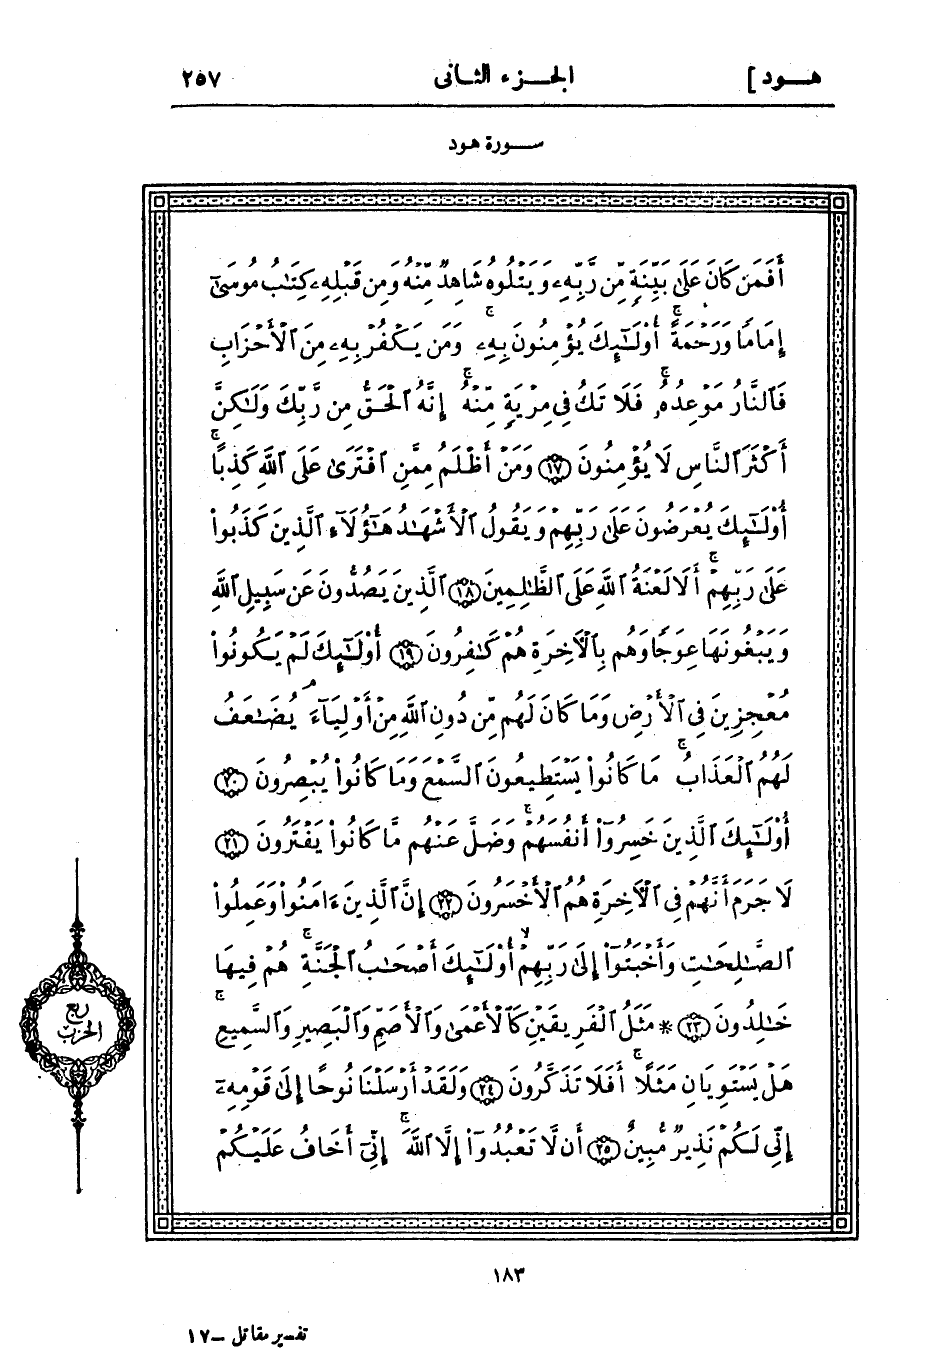 هـود ] الجـزء الثانى ٢٥٧
سـورة هود
أَفَمَن كَانَ عَلَىٰ بَيِّنَةٍ مِّن رَّبِّهِۦ وَيَتْلُوهُ شَاهِدٌ مِّنْهُ وَمِن قَبْلِهِۦ كِتَـٰبُ مُوسَىٰٓ
إِمَامًا وَرَحْمَةً ۚ أُوْلَـٰٓئِكَ يُؤْمِنُونَ بِهِۦ ۚ وَمَن يَكْفُرْ بِهِۦ مِنَ ٱلْأَحْزَابِ
فَٱلنَّارُ مَوْعِدُهُۥ ۚ فَلَا تَكُ فِى مِرْيَةٍ مِّنْهُ ۚ إِنَّهُ ٱلْحَقُّ مِن رَّبِّكَ وَلَـٰكِنَّ
أَكْثَرَ ٱلنَّاسِ لَا يُؤْمِنُونَ ﴿١٧﴾ وَمَنْ أَظْلَمُ مِمَّنِ ٱفْتَرَىٰ عَلَى ٱللَّهِ كَذِبًا ۚ
أُوْلَـٰٓئِكَ يُعْرَضُونَ عَلَىٰ رَبِّهِمْ وَيَقُولُ ٱلْأَشْهَـٰدُ هَـٰٓؤُلَآءِ ٱلَّذِينَ كَذَبُوا۟
عَلَىٰ رَبِّهِمْ ۚ أَلَا لَعْنَةُ ٱللَّهِ عَلَى ٱلظَّـٰلِمِينَ ﴿١٨﴾ ٱلَّذِينَ يَصُدُّونَ عَن سَبِيلِ ٱللَّهِ
وَيَبْغُونَهَا عِوَجًا وَهُم بِٱلْأَخِرَةِ هُمْ كَـٰفِرُونَ ﴿١٩﴾ أُوْلَـٰٓئِكَ لَمْ يَكُونُوا۟
مُعْجِزِينَ فِى ٱلْأَرْضِ وَمَا كَانَ لَهُم مِّن دُونِ ٱللَّهِ مِنْ أَوْلِيَآءَ ۘ يُضَـٰعَفُ
لَهُمُ ٱلْعَذَابُ ۚ مَا كَانُوا۟ يَسْتَطِيعُونَ ٱلسَّمْعَ وَمَا كَانُوا۟ يُبْصِرُونَ ﴿٢٠﴾
أُوْلَـٰٓئِكَ ٱلَّذِينَ خَسِرُوٓا۟ أَنفُسَهُمْ ۚ وَضَلَّ عَنْهُم مَّا كَانُوا۟ يَفْتَرُونَ ﴿٢١﴾
لَا جَرَمَ أَنَّهُمْ فِى ٱلْأَخِرَةِ هُمُ ٱلْأَخْسَرُونَ ﴿٢٢﴾ إِنَّ ٱلَّذِينَ ءَامَنُوا۟ وَعَمِلُوا۟
ٱلصَّـٰلِحَـٰتِ وَأَخْبَتُوٓا۟ إِلَىٰ رَبِّهِمْ ۙ أُوْلَـٰٓئِكَ أَصْحَـٰبُ ٱلْجَنَّةِ ۚ هُمْ فِيهَا
خَـٰلِدُونَ ﴿٢٣﴾ * مَثَلُ ٱلْفَرِيقَيْنِ كَٱلْأَعْمَىٰ وَٱلْأَصَمِّ وَٱلْبَصِيرِ وَٱلسَّمِيعِ ۚ
هَلْ يَسْتَوِيَانِ مَثَلًا ۚ أَفَلَا تَذَكَّرُونَ ﴿٢٤﴾ وَلَقَدْ أَرْسَلْنَا نُوحًا إِلَىٰ قَوْمِهِۦٓ
إِنِّى لَكُمْ نَذِيرٌ مُّبِينٌ ﴿٢٥﴾ أَن لَّا تَعْبُدُوٓا۟ إِلَّا ٱللَّهَ ۚ إِنِّىٓ أَخَافُ عَلَيْكُمْ
ربع
الحزب
١٨٣
تفسير مقاتل – ١٧